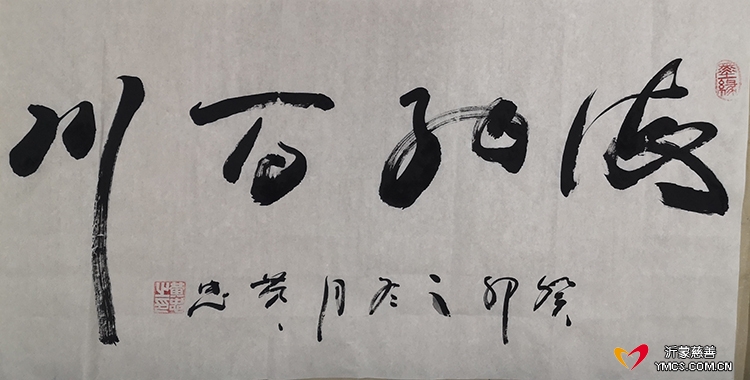 海纳百川
癸卯之冬月黄忠
沂蒙慈善
YMCS.COM.CN